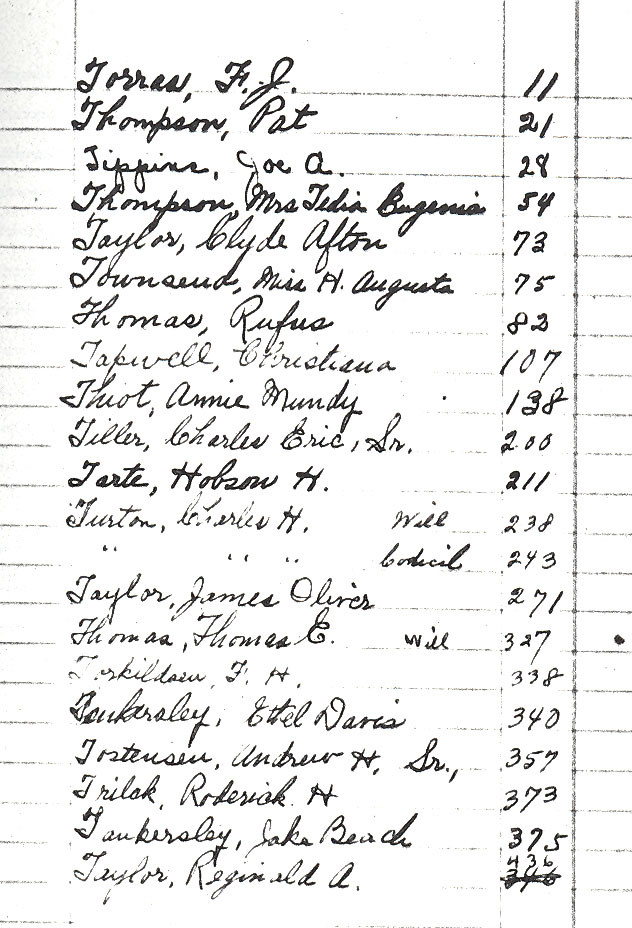 Torras, F. J. 11
Thompson, Pat 21
Tippins, Joe A. 28
Thompson, Mrs Tedia Eugenia 54
Taylor, Clyde Afton 73
Townsend, Miss H. Augusta 75
Thomas, Rufus 82
Tapwell, Christiana 107
Thiot, Annie Mundy 138
Tiller, Charles Eric, Sr. 200
Tarte, Hobson H. 211
Turton, Charles H. Will 238
" " " Codicil 243
Taylor, James Oliver 271
Thomas, Thomas E. Will 327
Torkildsen, F. H. 338
Tankersley, Ethel Davis 340
Tostensen, Andrew H. Sr., 357
Trilak, Roderick H 373
Tankersley, Jake Beach 375
Taylor, Reginald A. 436